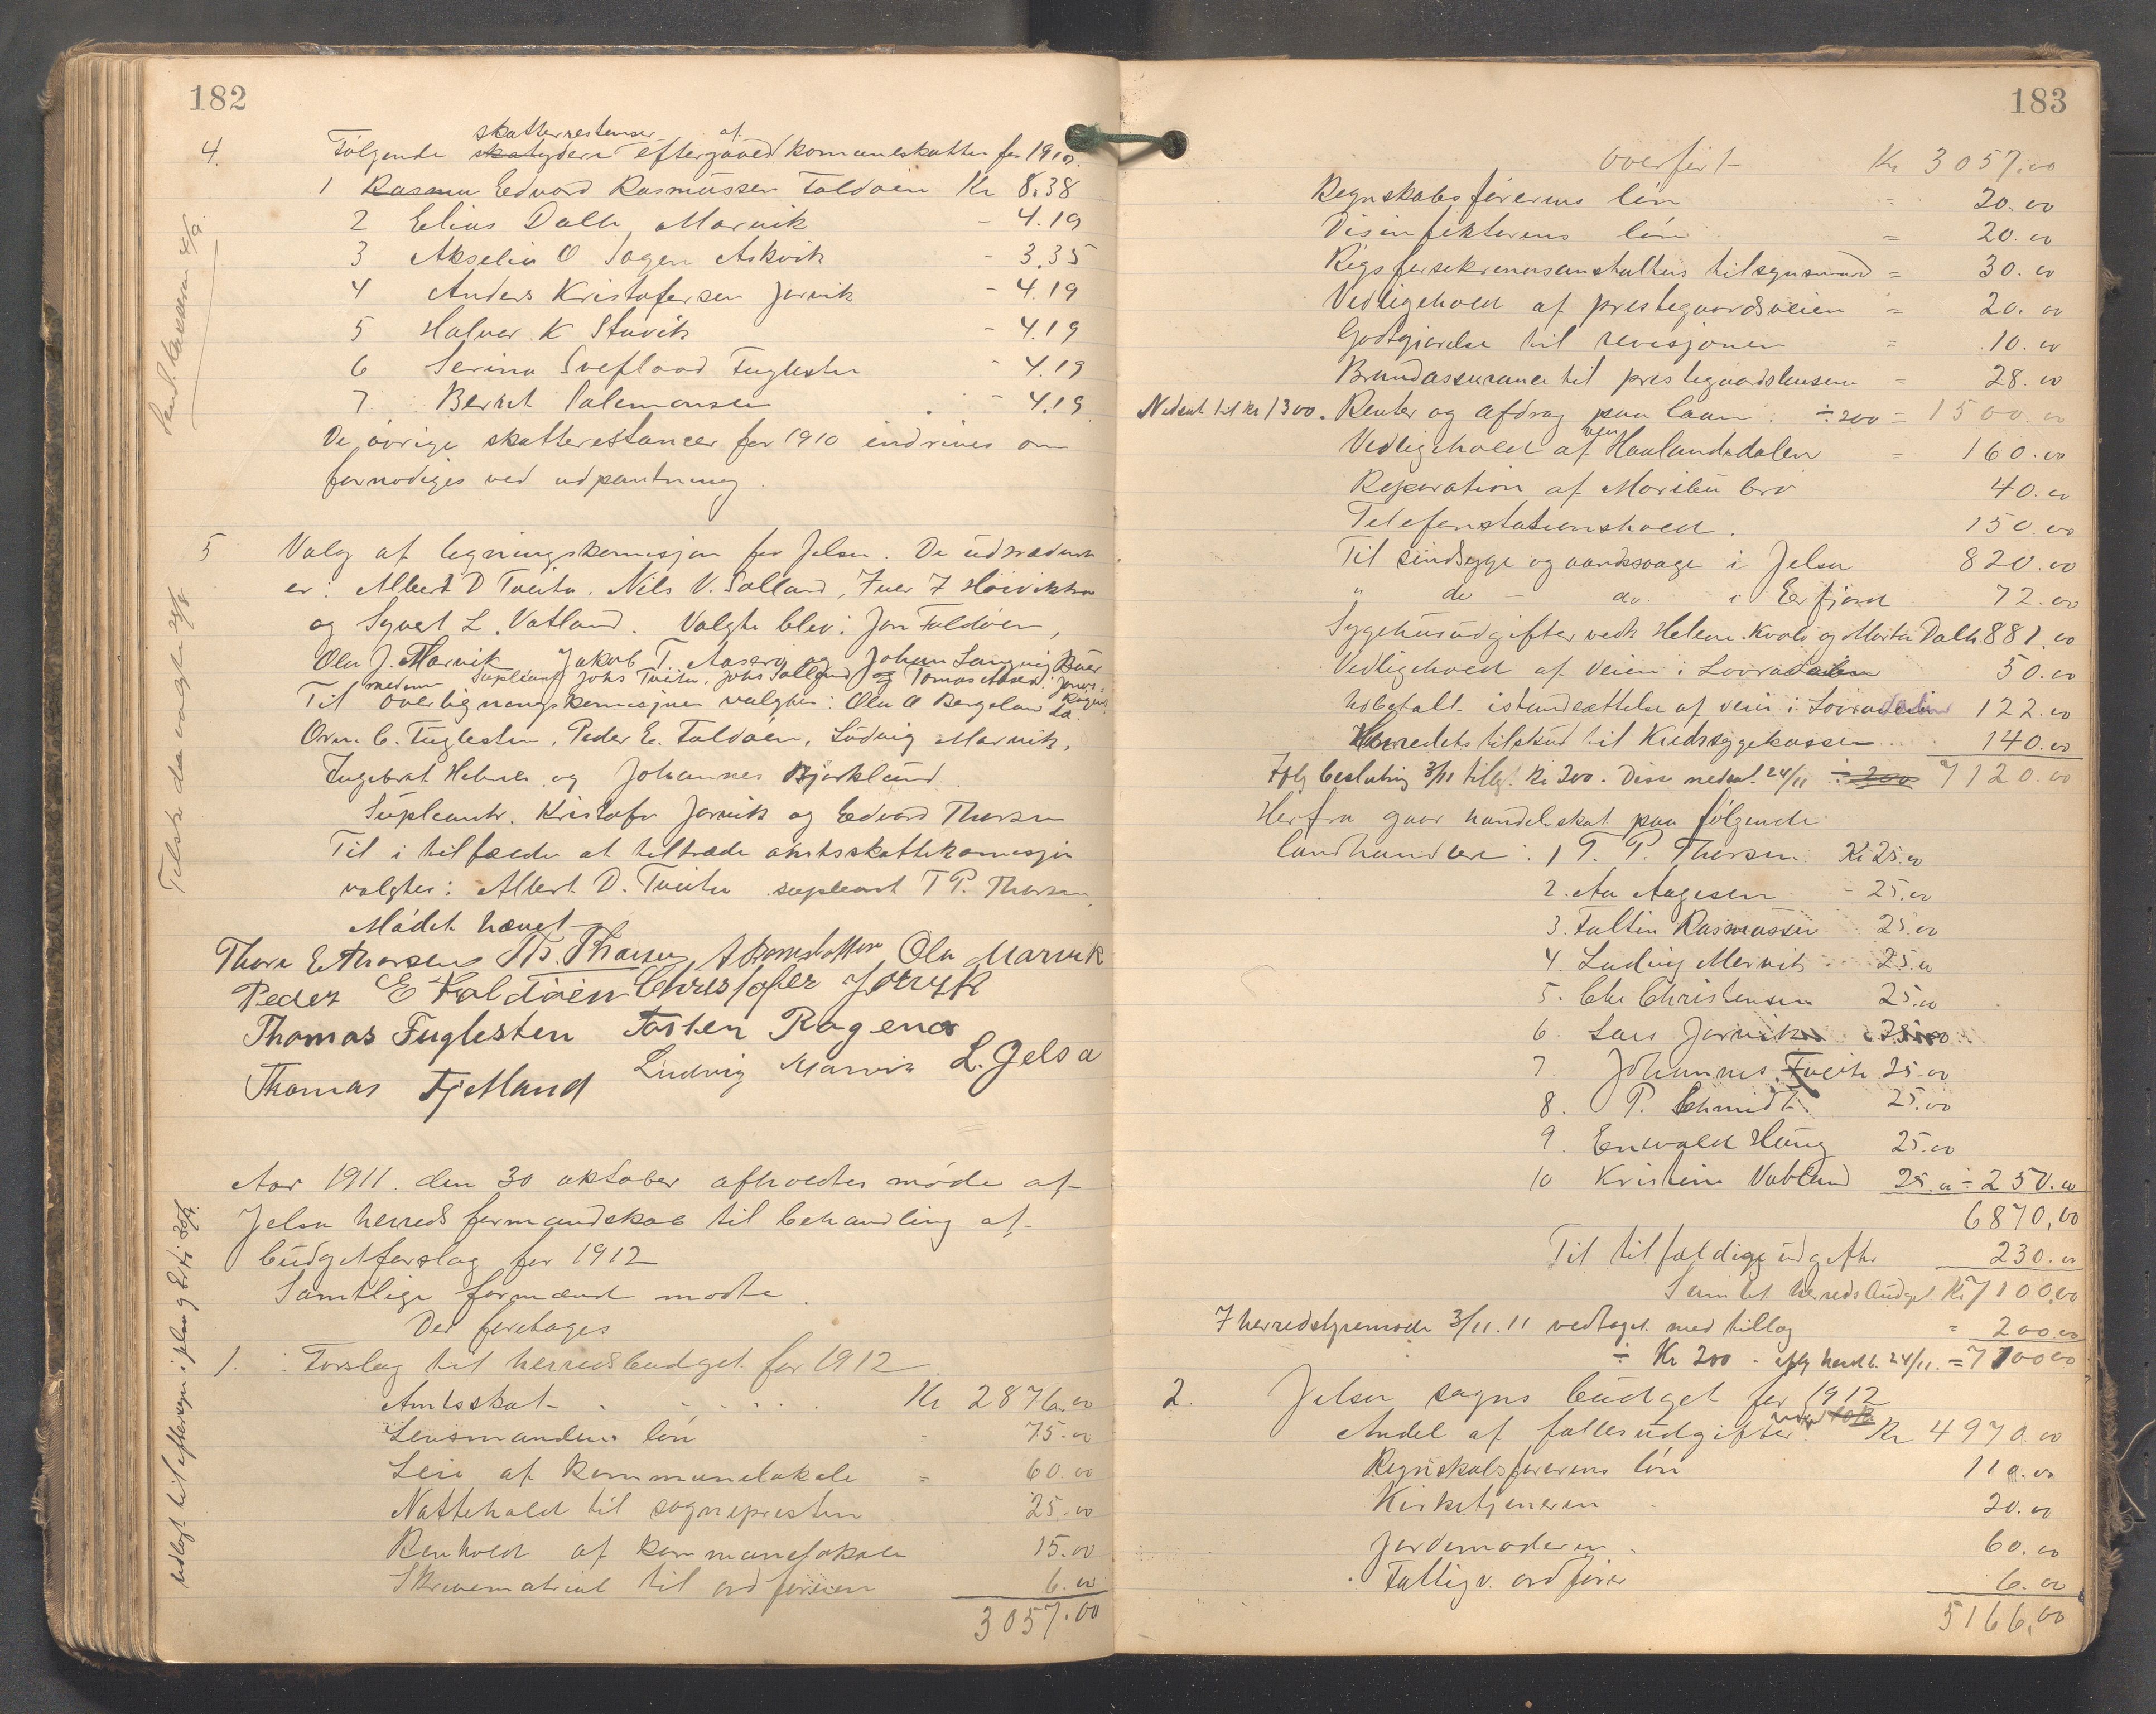 182
4. Følgende skatterestenser af
skatydere eftergaaved komuneskatten for 1910.
1 Rasmu Edvard Rasmussen Foldøen Kr 8.38
2 Elias Dalh Marvik - 4.19
3 Akselia O Sagen Askvik - 3.35
4 Anders Kristofersen Jørvik - 4.19
5 Halver K Stuvik - 4.19
6 Serina Sveflaad Fuglesten - 4.19
7. Berret Salemonsen - 4.19
De øvrige skatterestancer for 1910 indrives om
fornødiges ved udpantning.
5 Valg af ligningskomisjon for Jelsa. De udtrædende
er: Albert D Tveita. Nils V. Salland, Iver I Høivikhm
og Syvert L. Vatland. Valgte blev: Jon Foldøen,
Ola J. Marvik Jakob T. Aaserø og Johan Langvig Bøer
medens Supleant Johs Tveita, Johs Salland og Tomas Aasen. Jonas
Til overligningskomisjonen valgtes: Ola A Bergeland
Orm. C. Fuglesten, Peder E. Foldøen, Ludvig Marvik,
Ingebret Hebnes og Johannes Bjørklund
Supleanter. Kristofer Jørvik og Edvard Thorsen
Til i tilfælde at tiltræde amtsskattekomisjon
valgtes: Albert D. Tveita supleant T P. Thorsen,
Mødet hævet
Thore E Thorsen Ths. Thorsen Ola Marvik
Peder E Foldøen Christofer Jørvik
Thomas Fuglesten Torsten Ragena
Thomas Fjetland Ludvig Marvik L. Jelsa
Aar 1911. den 30 oktober afholdtes møde af
Jelsa herreds formandskab til behandling af
budgetforslag for 1912
Samtlige formænd mødte.
Der foretoges
1. Forslag til herredsbudget for 1912
Amtsskat Kr 2876.00
Lensmandens løn 75.00
Leie af kommunelokale = 60.00
Nattehold til sognepresten 25.00
Renhold af kommunelokale 15.00
Skrivematrial til ordføreren 6.00
3057.00
183
Overført Kr 3057.00
Regnskabsførerens løn 20.00
Disinfektørens løn = 20.00
Rigsforsekrensanstaltens tilsynsmænd = 30.00
Vedligehold af prestegaardsveien = 20.00
Godtgjørelse til revisjonen = 10.00
Brandassurance til prestegaardshusene = 28.00
Nedsat til kr 1300. Renter og afdrag paa laan. ÷200 = 1500.00
Vedligehold af vei Haalandsdalen = 160.00
Reparation af Maribu bro 40.00
Telefonstationshold. 150.00
Til sindsyge og aandssvage i Jelsa 820.00
" do - do. i Erfjord 72.00
Sygehusudgifter vedk Helene Kvale og Marta Dalh 881.00
Vedligehold af veien i Lovradalen 50.00
Ubetalt istandsættelse af veien i Lovradalen 122.00
Herredets tilskud til Kredssygekassen 140.00
Ifølg beslutning 3/11 tillg. Kr 200. Disse nedsat 24/11 ÷ 200 7120.00
Herfra gaar handelsskat paa følgende
landhandlere: 1 T. P. Thorsen. Kr 25.00
2. Aa Aagesen - 25.00
3. Faltin Rasmussen 25.00
4. Ludvig Marvik 25.00
5. Chr Christensen 25.00
6. Lars Jørvik 25.00
7. Johannes Tveita 25.00
8. P. Schmidt 25.00
9. Enevald Haug 25.00
10 Kristine Vatland 25.00 ÷ 250.00
6870,00
Til tilfældige udgifter 230.00
Samlet herredsbudget Kr 7100,00
I herredstyremøde 3/11.11 vedtaget med tillæg = 200.00
÷ Kr 200 - 24/11. = 7100.00
2. Jelsa sogns budget for 1912
Andel af fællesudgifter Kr 4970.00
Regnskabsførerens løn 110.00
Kirketjeneren 20.00
Jordemoderen 60.00
Fattigv. ordfører 6.00
5166,00